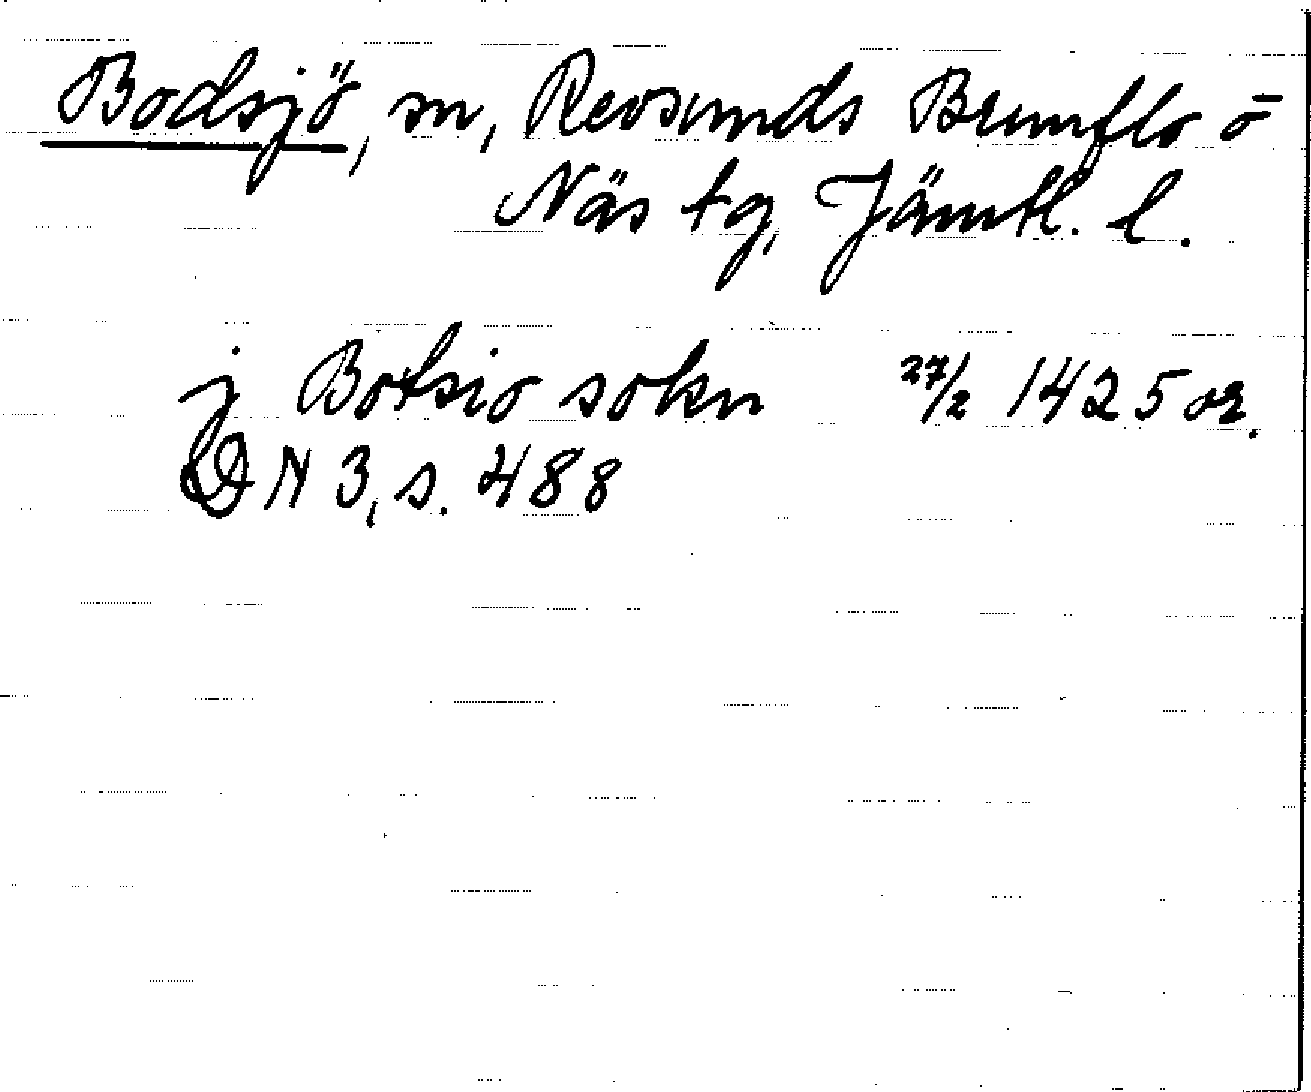 Bodsjö, sn, Revsunds Brunflo o
Näs tg, Jämtl. l.
j Botsio sokn 27/2 1425 or.
DN 3, s. 488